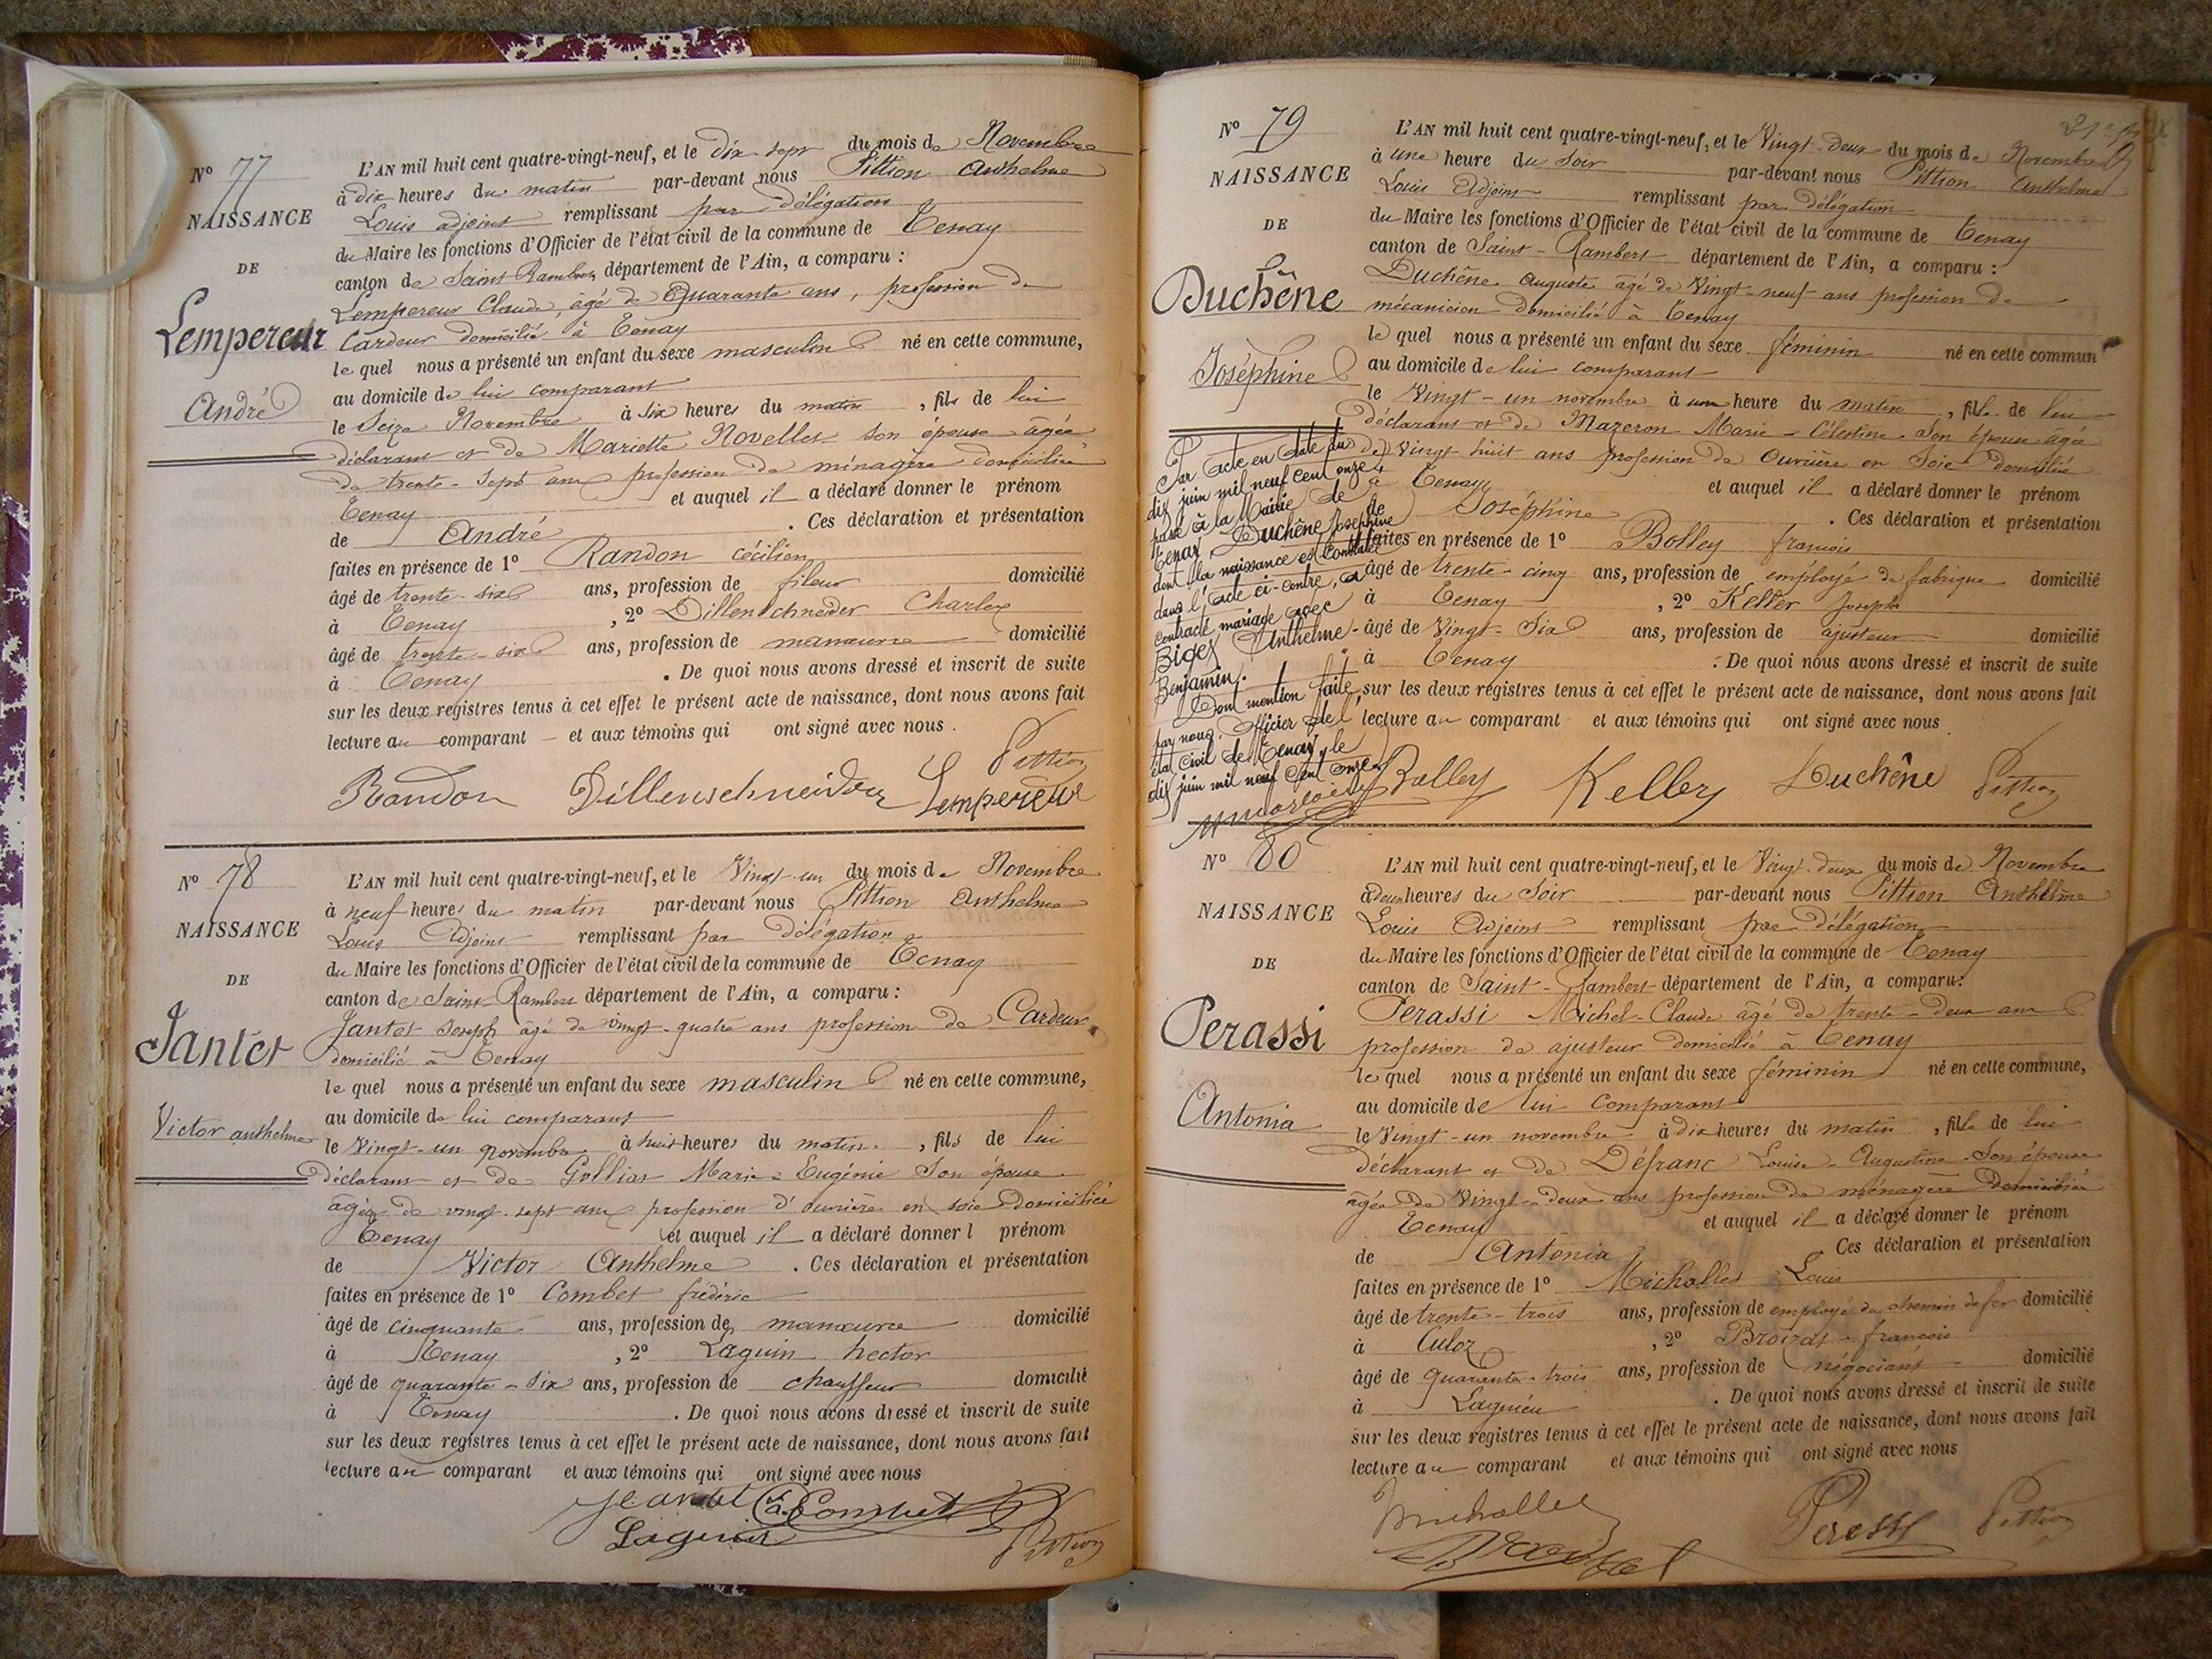 N° 77
NAISSANCE
DE
Lempereur
André
L'AN mil huit cent quatre-vingt-neuf, et le dix-sept du mois de Novembre
à dix heures du matin par-devant nous Pittion Anthelme
Louis adjoint remplissant par délégation
du Maire les fonctions d'Officier de l'état civil de la commune de Tenay
canton de Saint Rambert, département de l'Ain, a comparu :
Lempereur Claude, âgé de Quarante ans, profession de
Cardeur domicilié à Tenay
lequel nous a présenté un enfant du sexe masculin né en cette commune,
au domicile de lui comparant
le Seize Novembre à six heures du matin, fils de lui
déclarant et de Mariette Novellet son épouse âgée
de trente-sept ans profession de ménagère domiciliée
Tenay et auquel il a déclaré donner le prénom
de André . Ces déclaration et présentation
faites en présence de 1° Randon Cécilien
âgé de trente-six ans, profession de fileur domicilié
à Tenay , 2° Dillenschneider Charles
âgé de trente-six ans, profession de manœuvre domicilié
à Tenay . De quoi nous avons dressé et inscrit de suite
sur les deux registres tenus à cet effet le présent acte de naissance, dont nous avons fait
lecture au comparant et aux témoins qui ont signé avec nous.
Pittion
Randon Dillenschneider Lempereur
N° 78
NAISSANCE
DE
Jantet
Victor anthelme
L'AN mil huit cent quatre-vingt-neuf, et le Vingt-un du mois de Novembre
à neuf heures du matin par-devant nous Pittion Anthelme
Louis Adjoint remplissant par délégation
du Maire les fonctions d'Officier de l'état civil de la commune de Tenay
canton de Saint-Rambert département de l'Ain, a comparu :
Jantet Joseph âgé de vingt-quatre ans profession de Cardeur
domicilié à Tenay
lequel nous a présenté un enfant du sexe masculin né en cette commune,
au domicile de lui comparant
le Vingt-un novembre à huit heures du matin, fils de lui
déclarant et de Gollias Marie-Eugénie Son épouse
âgée de vingt-sept ans profession d'ouvrière en soie domiciliée
Tenay et auquel il a déclaré donner l prénom
de Victor Anthelme . Ces déclaration et présentation
faites en présence de 1° Combet frédéric
âgé de cinquante ans, profession de manœuvre domicilié
à Tenay , 2° Laguin hector
âgé de quarante-six ans, profession de chauffeur domicilié
à Tenay . De quoi nous avons dressé et inscrit de suite
sur les deux registres tenus à cet effet le présent acte de naissance, dont nous avons fait
lecture au comparant et aux témoins qui ont signé avec nous
Combet
Laguin Pittion
N° 79
NAISSANCE
DE
Duchêne
Joséphine
L'AN mil huit cent quatre-vingt-neuf, et le Vingt-deux du mois de Novembre
à une heure du soir par-devant nous Pittion Anthelme
Louis Adjoint remplissant par délégation
du Maire les fonctions d'Officier de l'état civil de la commune de Tenay
canton de Saint-Rambert département de l'Ain, a comparu :
Duchêne Auguste âgé de Vingt-neuf ans profession de
mécanicien domicilié à Tenay
lequel nous a présenté un enfant du sexe féminin né en cette commun
au domicile de lui comparant
le Vingt-un novembre à une heure du matin, fille de lui
déclarant et de Mazeron Marie-Célestine Son épouse âgée
de Vingt huit ans profession de Ouvrière en Soie domiciliée
à Tenay et auquel il a déclaré donner le prénom
de Joséphine . Ces déclaration et présentation
faites en présence de 1° Bolley françois
âgé de trente-cinq ans, profession de employé de fabrique domicilié
à Tenay , 2° Keller Joseph
âgé de Vingt-Six ans, profession de ajusteur domicilié
à Tenay . De quoi nous avons dressé et inscrit de suite
sur les deux registres tenus à cet effet le présent acte de naissance, dont nous avons fait
lecture au comparant et aux témoins qui ont signé avec nous
Bolley Keller Duchêne Pittion
Par acte en date du
dix juin mil neuf cent onze,
passé à la Mairie de
Tenay, Duchêne Joséphine
dont la naissance est constatée
dans l'acte ci-contre, a
contracté mariage avec
Bigex Anthelme-
Benjamin.
Dont mention faite
par nous, officier de l'
état civil de Tenay, le
dix juin mil neuf cent onze.
N° 80
NAISSANCE
DE
Perassi
Antonia
L'AN mil huit cent quatre-vingt-neuf, et le Vingt-deux du mois de Novembre
à deux heures du Soir par-devant nous Pittion Anthelme
Louis Adjoint remplissant par délégation
du Maire les fonctions d'Officier de l'état civil de la commune de Tenay
canton de Saint-Rambert département de l'Ain, a comparu:
Perassi Michel-Claude âgé de trente-deux ans
profession de ajusteur domicilié à Tenay
lequel nous a présenté un enfant du sexe féminin né en cette commune,
au domicile de lui comparant
le Vingt-un novembre à dix heures du matin, fille de lui
déclarant et de Défranc Louise-Augustine Son épouse
âgée de Vingt-deux ans profession de ménagère domiciliée
Tenay et auquel il a déclaré donner le prénom
de Antonia . Ces déclaration et présentation
faites en présence de 1° Michallet Louis
âgé de trente-trois ans, profession de employé de chemin de fer domicilié
à Culoz , 2° françois
âgé de Quarante-trois ans, profession de négociant domicilié
à Lagnieu . De quoi nous avons dressé et inscrit de suite
sur les deux registres tenus à cet effet le présent acte de naissance, dont nous avons fait
lecture au comparant et aux témoins qui ont signé avec nous
Michallet Pittion